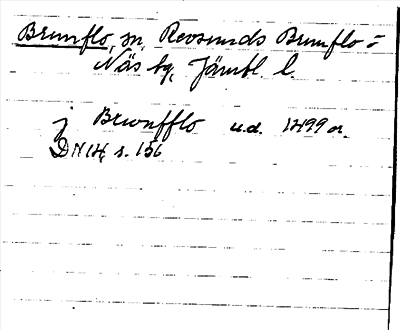 Brunflo, sn, Revsunds Brunflo o
Näs tg, Jämtl. l.
j Brwnfflo u.d. 1499 or.
DN14, s. 156